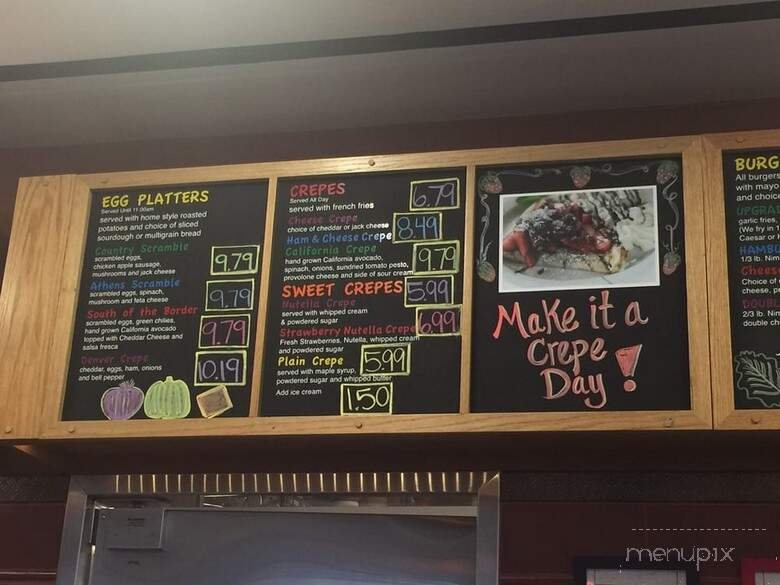 EGG PLATTERS
Served Until 11:00am
served with home style roasted
potatoes and choice of sliced
sourdough or multigrain bread
Country Scramble
scrambled eggs,
chicken apple sausage,
mushrooms and jack cheese
9.79
Athens Scramble
scrambled eggs, spinach,
mushroom and feta cheese
9.79
South of the Border
scrambled eggs, green chilies,
hand grown California avocado
topped with Cheddar Cheese and
salsa fresca
9.79
Denver Crepe
cheddar, eggs, ham, onions
and bell pepper
10.19
CREPES
Served All Day
served with french fries
6.79
Cheese Crepe
choice of cheddar or jack cheese
Ham & Cheese Crepe
8.49
California Crepe
hand grown California avocado,
spinach, onions, sundried tomato pesto,
provolone cheese and side of sour cream
9.79
SWEET CREPES
5.99
Nutella Crepe
served with whipped cream
& powdered sugar
Strawberry Nutella Crepe
6.99
Fresh Strawberries, Nutella, whipped cream
and powdered sugar
Plain Crepe
5.99
served with maple syrup,
powdered sugar and whipped butter
Add ice cream
1.50
Make it a
Crepe
Day!
BURG
All burgers
with mayo
and choice
UPGRA
garlic fries,
(We fry in 1
Caesar or H
HAMBU
1/3 lb. Nim
Chees
Choice of
cheese, pr
DOUBL
2/3 lb. Nin
double ch
menupix